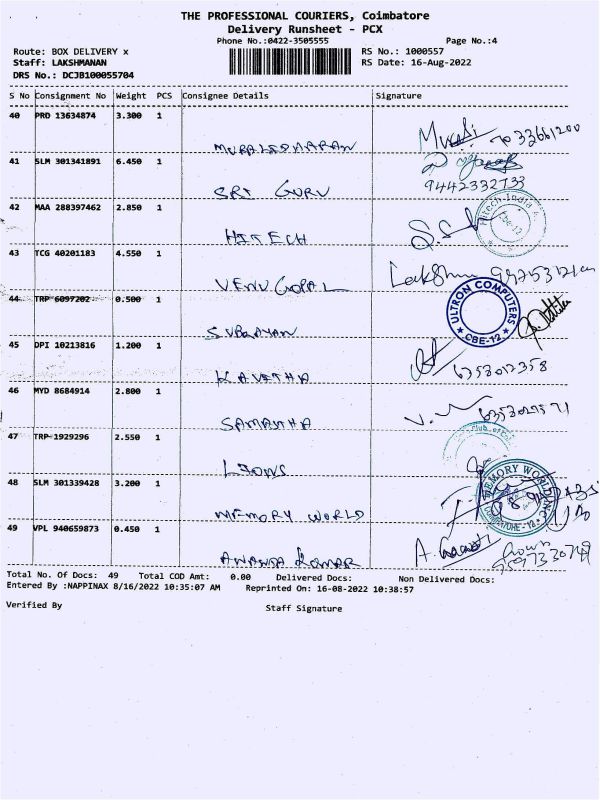 THE PROFESSIONAL COURIERS, Coimbatore
Delivery Runsheet - PCX
Phone No.:0422-3505555
Page No.:4
Route: BOX DELIVERY x
RS No.: 1000557
Staff: LAKSHMANAN
RS Date: 16-Aug-2022
DRS No.: DCJB100055704
S No Consignment No Weight PCS Consignee Details Signature
40 PRO 13634874 3.300 1
MURALEDHARAN
41 SLM 301341891 6.450 1
SRI GURU 9442332733
42 MAA 288397462 2.850 1
HITECH
43 TCG 40201183 4.550 1
VENUGOPAL
44 TRP 6097202 0.500 1
ULTRON COMPUTERS
★ CBE-12 ★
45 DPI 10213816 1.200 1
KAVETHA
46 MYD 8684914 2.800 1
SAMANTHA
47 TRP 1929296 2.550 1
LIONS
48 SLM 301339428 3.200 1
MEMORY WORLD
MEMORY WORLD
COIMBATORE-12
49 VPL 940659873 0.450 1
ANANDA KUMAR
Total No. Of Docs: 49 Total COD Amt: 0.00 Delivered Docs: Non Delivered Docs:
Entered By :NAPPINAX 8/16/2022 10:35:07 AM Reprinted On: 16-08-2022 10:38:57
Verified By
Staff Signature